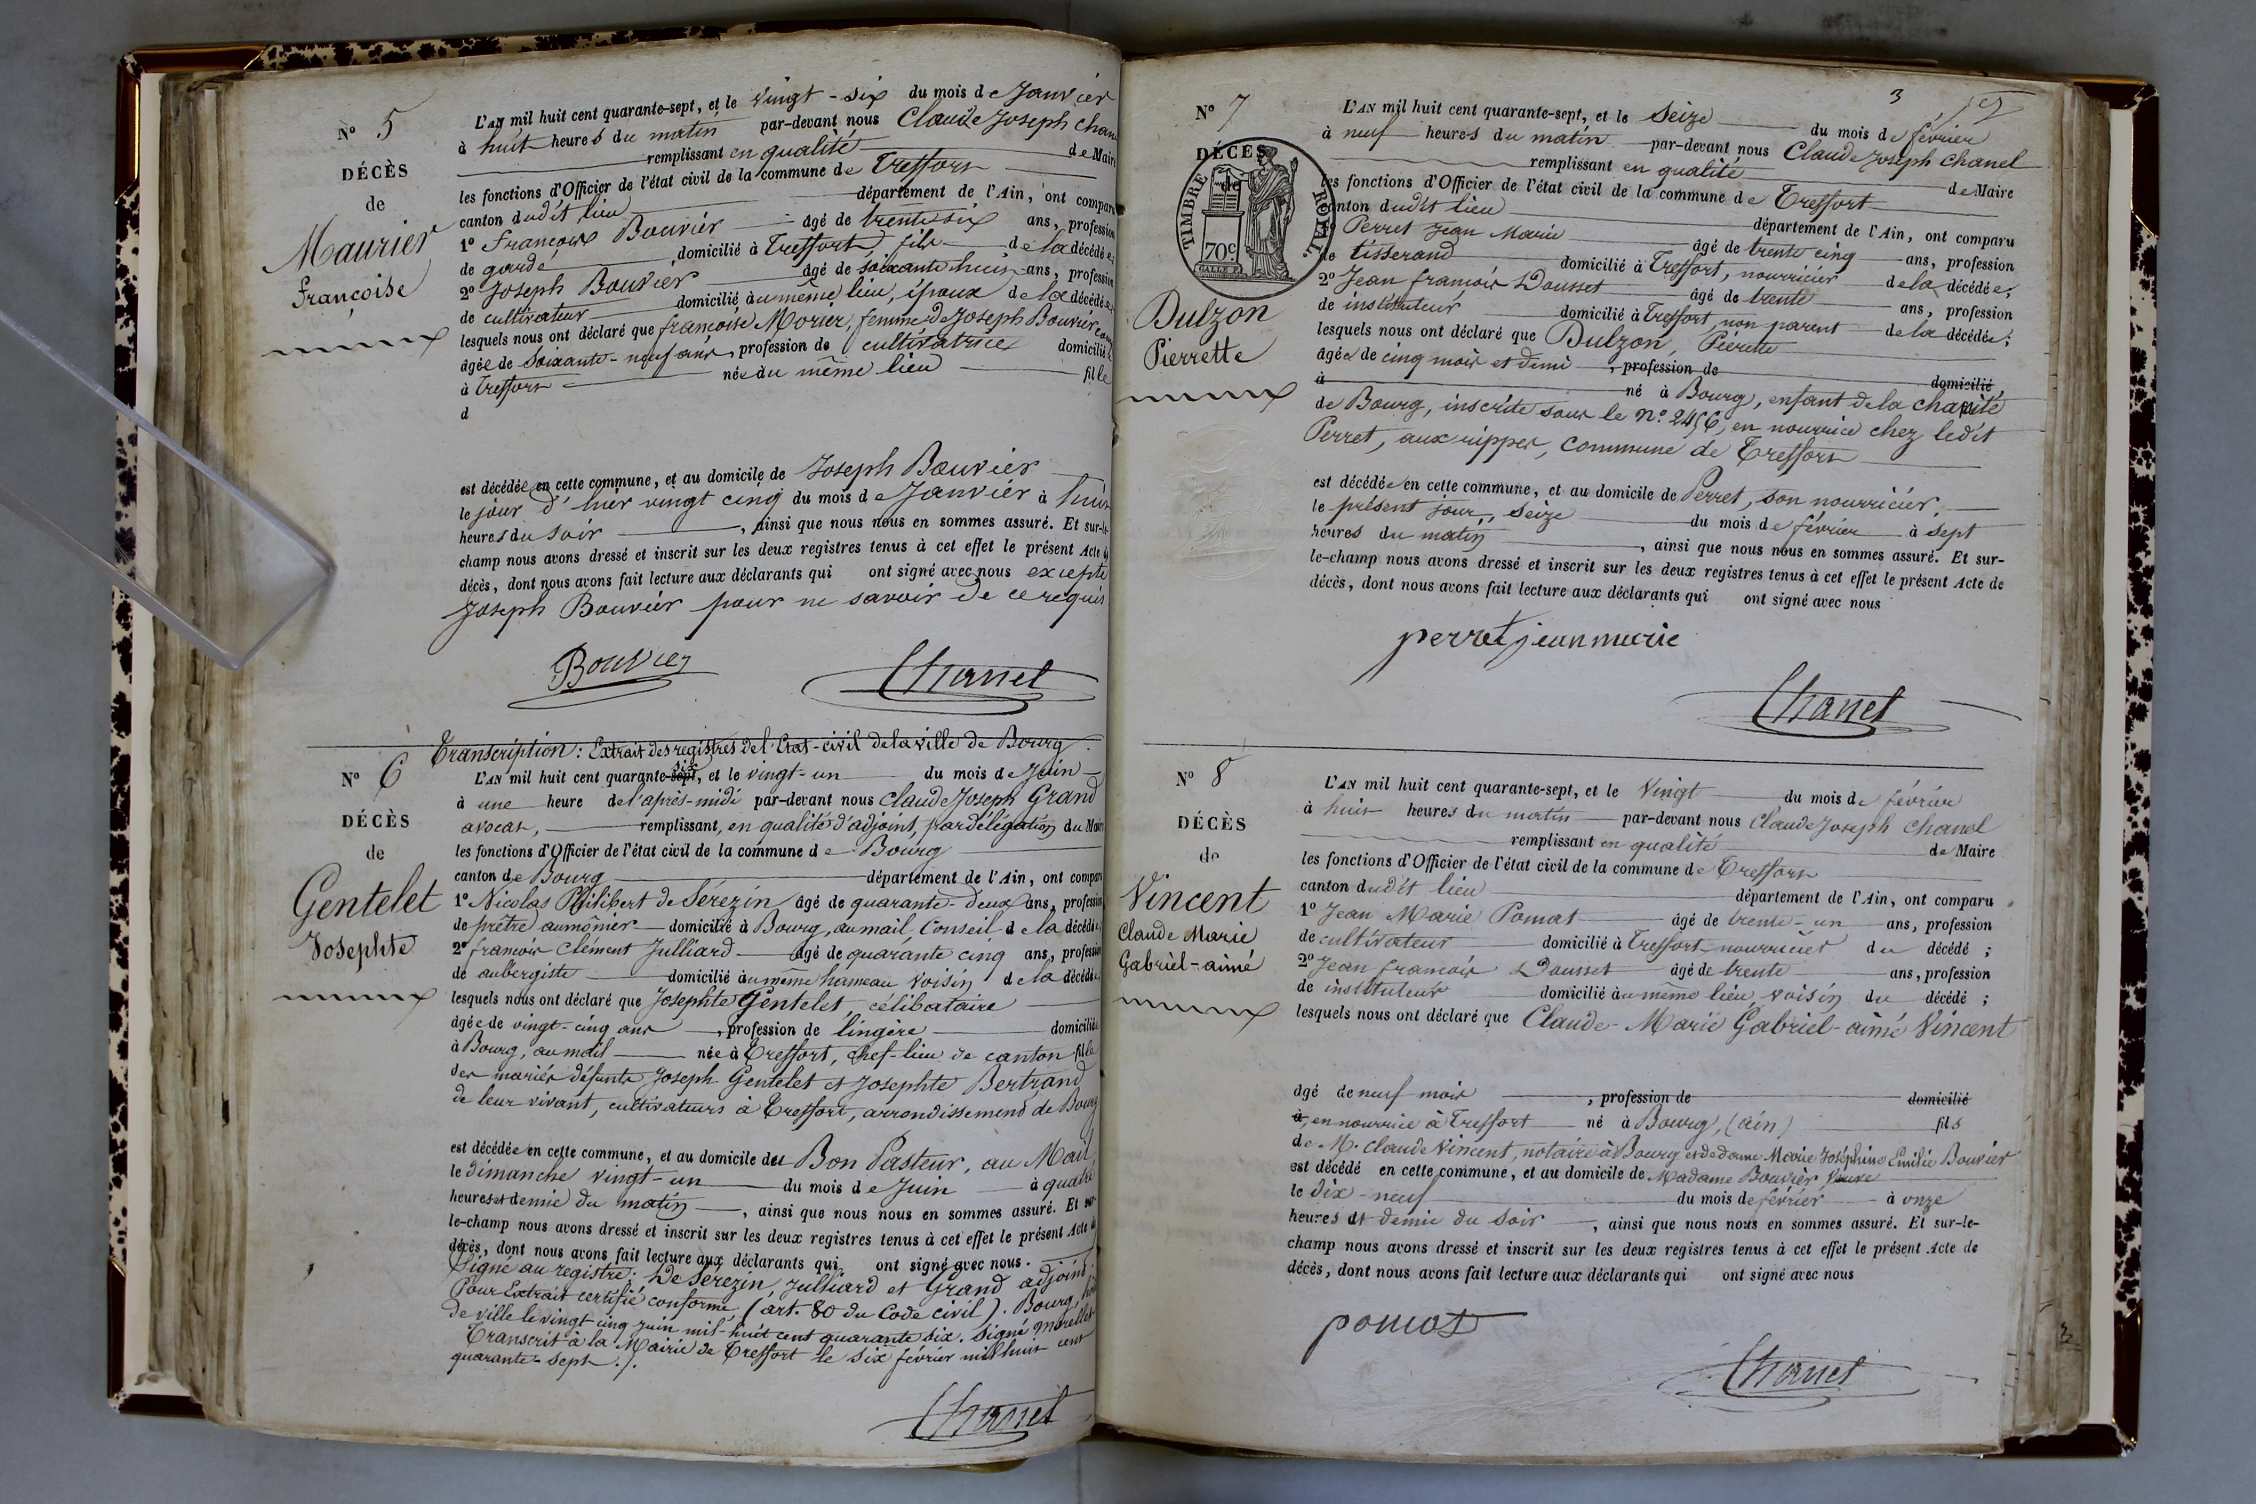 N° 5
DÉCÈS
de
Maurier
Françoise
L'AN mil huit cent quarante-sept, et le vingt-six du mois de Janvier
à huit heures du matin par-devant nous Claude Joseph Chanel
remplissant en qualité de Maire
les fonctions d'Officier de l'état civil de la commune de Treffort
canton dudit lieu département de l'Ain, ont comparu
1° François Bouvier âgé de trente six ans, profession
de garde domicilié à Treffort, fils de la décédée;
2° Joseph Bouvier âgé de soixante huit ans, profession
de cultivateur domicilié au même lieu, époux de la décédée;
lesquels nous ont déclaré que françoise Morier, femme de Joseph Bouvier
âgée de soixante-neuf ans, profession de cultivatrice domicilié
à Treffort née du même lieu fille
d
est décédée en cette commune, et au domicile de Joseph Bouvier
le jour d'hier vingt cinq du mois de Janvier à huit
heures du soir, ainsi que nous nous en sommes assuré. Et sur-le-
champ nous avons dressé et inscrit sur les deux registres tenus à cet effet le présent Acte de
décès, dont nous avons fait lecture aux déclarants qui ont signé avec nous excepté
Joseph Bouvier pour ne savoir de ce requis
Bouvier Chanel
Transcription: Extrait des registres de l'Etat-civil de la ville de Bourg.
N° 6
DÉCÈS
de
Gentelet
Josephte
L'AN mil huit cent quarante-sept six, et le vingt-un du mois de Juin
à une heure de l'après-midi par-devant nous Claude Joseph Grand
avocat, remplissant, en qualité d'adjoint, par délégation du Maire
les fonctions d'Officier de l'état civil de la commune de Bourg
canton de Bourg département de l'Ain, ont comparu
1° Nicolas Philibert de Sérezin âgé de quarante-deux ans, profession
de prêtre aumônier domicilié à Bourg, au mail, Conseil de la décédée;
2° françois Clément Julliard âgé de quarante cinq ans, profession
de aubergiste domicilié au même hameau voisin de la décédée;
lesquels nous ont déclaré que Josephte Gentelet, célibataire
âgée de vingt-cinq ans, profession de lingère domiciliée
à Bourg, au mail née à Treffort, chef-lieu de canton fille
des mariés défunts Joseph Gentelet et Josephte Bertrand
de leur vivant, cultivateurs à Treffort, arrondissement de Bourg
est décédée en cette commune, et au domicile du Bon Pasteur, au Mail,
le dimanche vingt-un du mois de Juin à quatre
heures et demie du matin, ainsi que nous nous en sommes assuré. Et sur-
le-champ nous avons dressé et inscrit sur les deux registres tenus à cet effet le présent Acte de
décès, dont nous avons fait lecture aux déclarants qui ont signé avec nous.
Signé au registre: De Sérezin, Julliard et Grand adjoint.
Pour Extrait certifié conforme, (art. 80 du Code civil). Bourg, hôtel
de ville le vingt cinq juin mil-huit cent quarante six. Signé
Transcrit à la Mairie de Treffort le six février mil huit cent
quarante-sept ./.
Chanel
3
N° 7
DÉCÈS
de
TIMBRE ROYAL.
70c.
Dulzon
Pierrette
L'AN mil huit cent quarante-sept, et le seize du mois de février
à neuf heures du matin par-devant nous Claude Joseph Chanel
remplissant en qualité de Maire
les fonctions d'Officier de l'état civil de la commune de Treffort
canton dudit lieu département de l'Ain, ont comparu
Perret Jean Marie âgé de trente cinq ans, profession
de tisserand domicilié à Treffort, nourricier de la décédée;
2° Jean françois Dousset âgé de trente ans, profession
de instituteur domicilié à Treffort, non parent de la décédée;
lesquels nous ont déclaré que Dulzon, Pierrette
âgée de cinq mois et demi, profession de domicilié
à né à Bourg, enfant de la charité
de Bourg, inscrite sous le N° 2456, en nourrice chez ledit
Perret, aux rippes, commune de Treffort
est décédée en cette commune, et au domicile de Perret, son nourricier.
le présent jour, seize du mois de février à sept
heures du matin, ainsi que nous nous en sommes assuré. Et sur-
le-champ nous avons dressé et inscrit sur les deux registres tenus à cet effet le présent Acte de
décès, dont nous avons fait lecture aux déclarants qui ont signé avec nous
perret jean marie
Chanel
N° 8
DÉCÈS
de
Vincent
Claude Marie
Gabriel-aimé
L'AN mil huit cent quarante-sept, et le vingt du mois de février
à huit heures du matin par-devant nous Claude Joseph Chanel
remplissant en qualité de Maire
les fonctions d'Officier de l'état civil de la commune de Treffort
canton dudit lieu département de l'Ain, ont comparu
1° Jean Marie Pomat âgé de trente-un ans, profession
de cultivateur domicilié à Treffort, nourricier du décédé;
2° Jean françois Dousset âgé de trente ans, profession
de instituteur domicilié au même lieu, voisin du décédé;
lesquels nous ont déclaré que Claude-Marie Gabriel-aimé Vincent
âgé de neuf mois, profession de domicilié
à, en nourrice à Treffort né à Bourg, (ain) fils
de M. Claude Vincent, notaire à Bourg et de dame Marie Joséphine Emilie Bouvier
est décédé en cette commune, et au domicile de Madame Bouvier, Veuve
le dix-neuf du mois de février à onze
heures et demie du soir, ainsi que nous nous en sommes assuré. Et sur-le-
champ nous avons dressé et inscrit sur les deux registres tenus à cet effet le présent Acte de
décès, dont nous avons fait lecture aux déclarants qui ont signé avec nous
pomat
Chanel